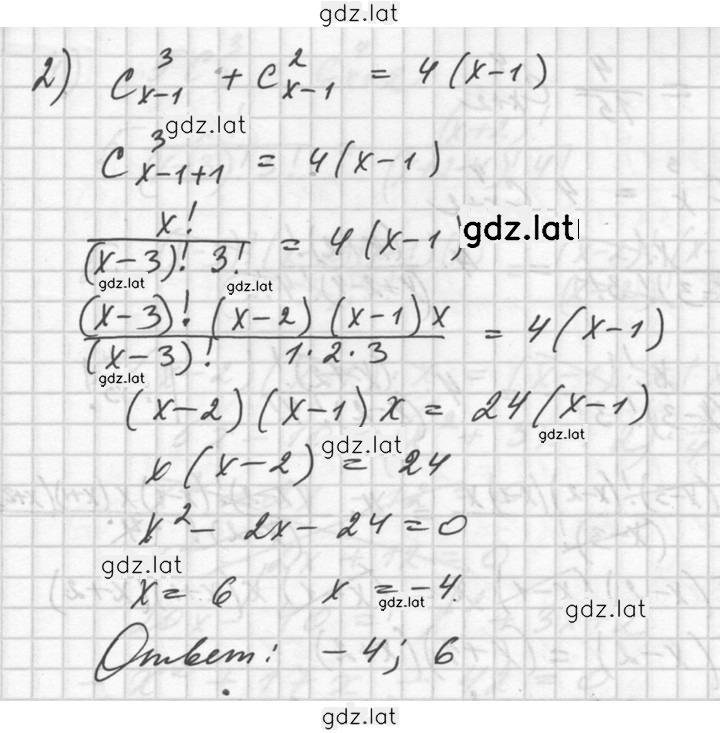 gdz.lat
2) C³ₓ₋₁ + C²ₓ₋₁ = 4(x-1)
gdz.lat
C³ₓ₋₁₊₁ = 4(x-1)
x! / (x-3)! 3! = 4(x-1) gdz.lat
gdz.lat gdz.lat
(x-3)! (x-2) (x-1) x / (x-3)! 1·2·3 = 4(x-1)
gdz.lat
(x-2) (x-1) x = 24(x-1)
gdz.lat gdz.lat
x(x-2) = 24
x² - 2x - 24 = 0
gdz.lat
x = 6 x = -4
gdz.lat gdz.lat
Ответ: -4; 6
gdz.lat